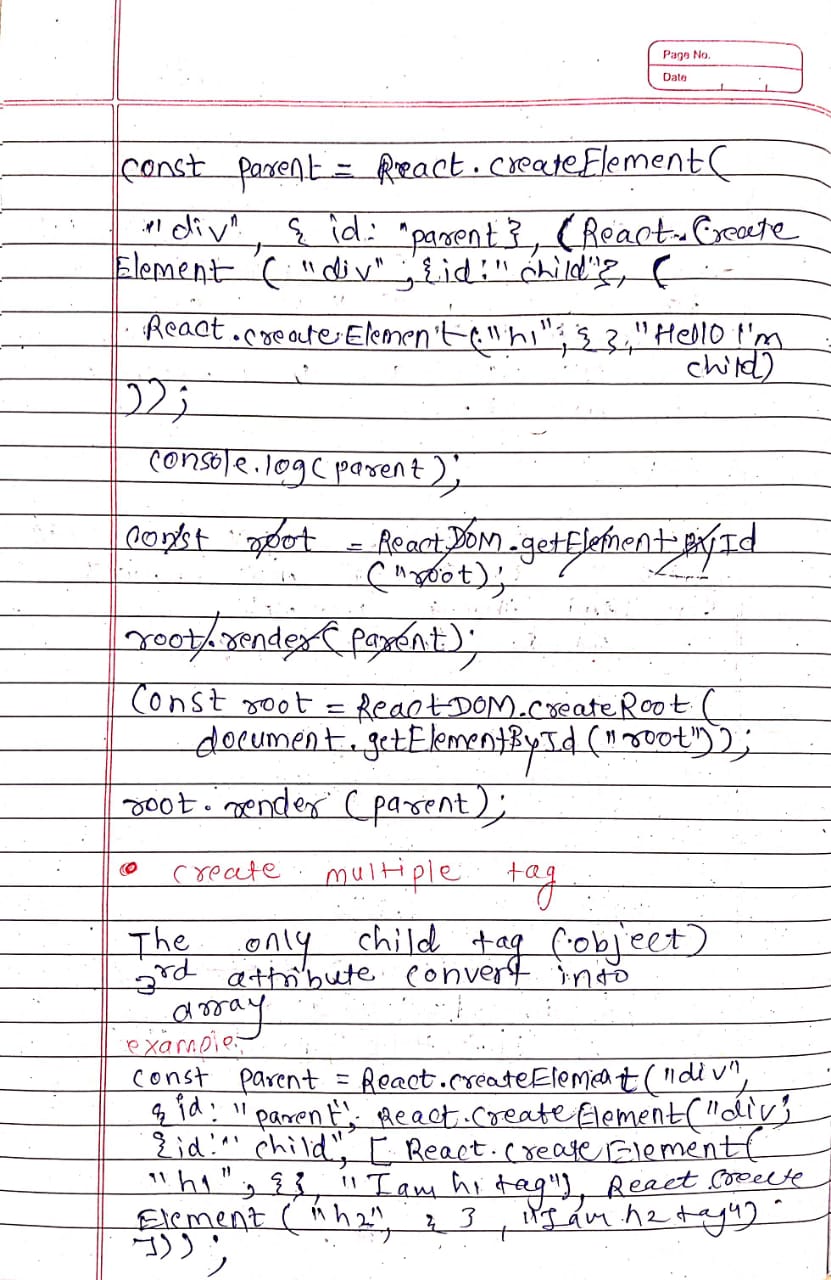 Page No.
Date
const parent = React.createElement(
"div", { id: "parent}, (React.Create
Element ( "div", {id:" child"}, (
React.createElement("h1", { },"Hello I'm
child)
));
console.log(parent);
const root = ReactDOM.getElementById
("root);
root.render(parent);
Const root = ReactDOM.createRoot (
document.getElementById ("root"));
root.render (parent);
create multiple tag
The only child tag (object)
3rd attribute convert into
array
example:
const parent = React.createElement("div",
{ id: "parent", React.createElement("div",
{id:" child", [ React.createElement(
"h1", {}, "I am h1 tag"), React.Create
Element ("h2", { }, "I am h2 tag")
]));